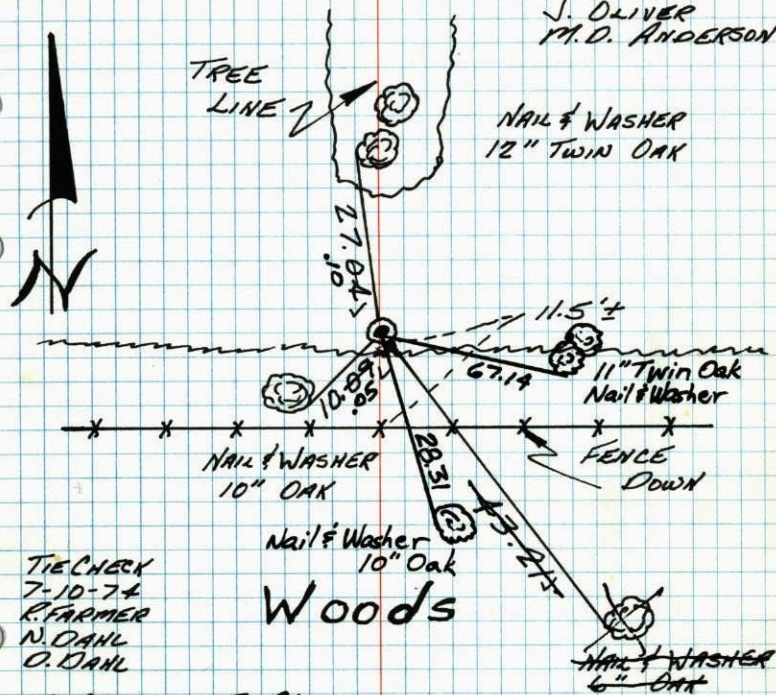 J. OLIVER
M.D. ANDERSON
TREE
LINE
NAIL & WASHER
12" TWIN OAK
N
27.04
.10
11.5'±
67.14
11" Twin Oak
Nail & Washer
10.09
.05
NAIL & WASHER
10" OAK
28.31
43.21
FENCE
DOWN
Nail & Washer
10" Oak
Woods
TIE CHECK
7-10-74
R. FARMER
N. DAHL
D. DAHL
NAIL & WASHER
6" OAK